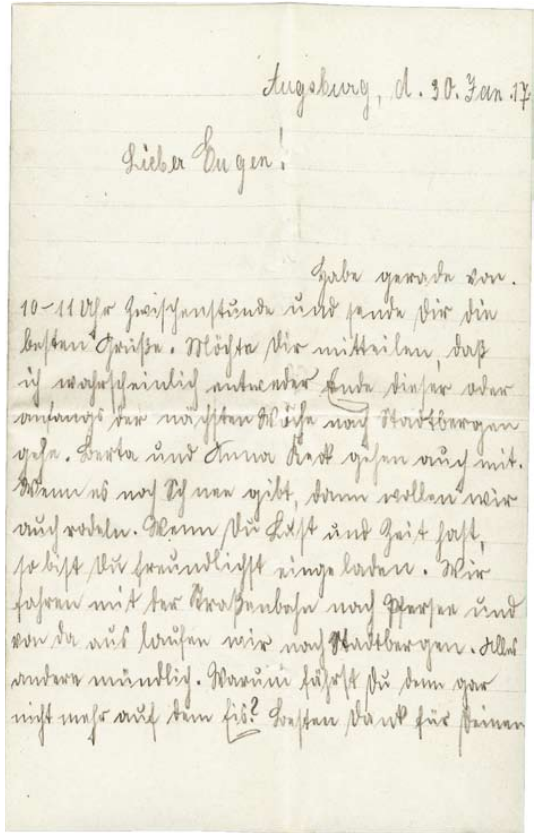 Augsburg, d. 30. Jan. 17.
Lieber Eugen!
Habe gerade von
10-11 Uhr Zwischenstunde und sende Dir die
besten Grüße. Möchte Dir mitteilen, daß
ich wahrscheinlich entweder Ende dieser oder
anfangs der nächsten Woche nach Stadtbergen
gehe. Berta und Anna Keck gehen auch mit.
Wenn es noch Schnee gibt, dann wollen wir
auch rodeln. Wenn Du Lust und Zeit hast,
so bist Du freundlichst eingeladen. Wir
fahren mit der Straßenbahn nach Pfersee und
von da aus laufen wir nach Stadtbergen. Alles
andere mündlich. Warum fährst Du denn gar
nicht mehr auf dem Eis? Besten Dank für Deinen